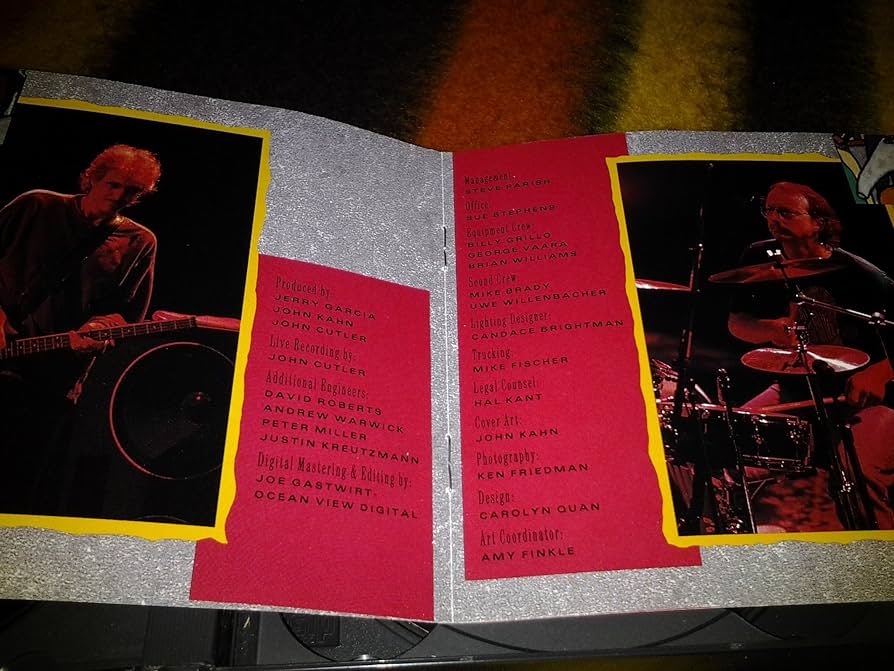 Produced by:
JERRY GARCIA
JOHN KAHN
JOHN CUTLER
Live Recording by:
JOHN CUTLER
Additional Engineers:
DAVID ROBERTS
ANDREW WARWICK
PETER MILLER
JUSTIN KREUTZMANN
Digital Mastering & Editing by:
JOE GASTWIRT,
OCEAN VIEW DIGITAL
Management:
STEVE PARISH
Office:
SUE STEPHENS
Equipment Crew:
BILLY GRILLO
GEORGE VAARA
BRIAN WILLIAMS
Sound Crew:
MIKE BRADY
UWE WILLENBACHER
Lighting Designer:
CANDACE BRIGHTMAN
Trucking:
MIKE FISCHER
Legal Counsel:
HAL KANT
Cover Art:
JOHN KAHN
Photography:
KEN FRIEDMAN
Design:
CAROLYN QUAN
Art Coordinator:
AMY FINKLE